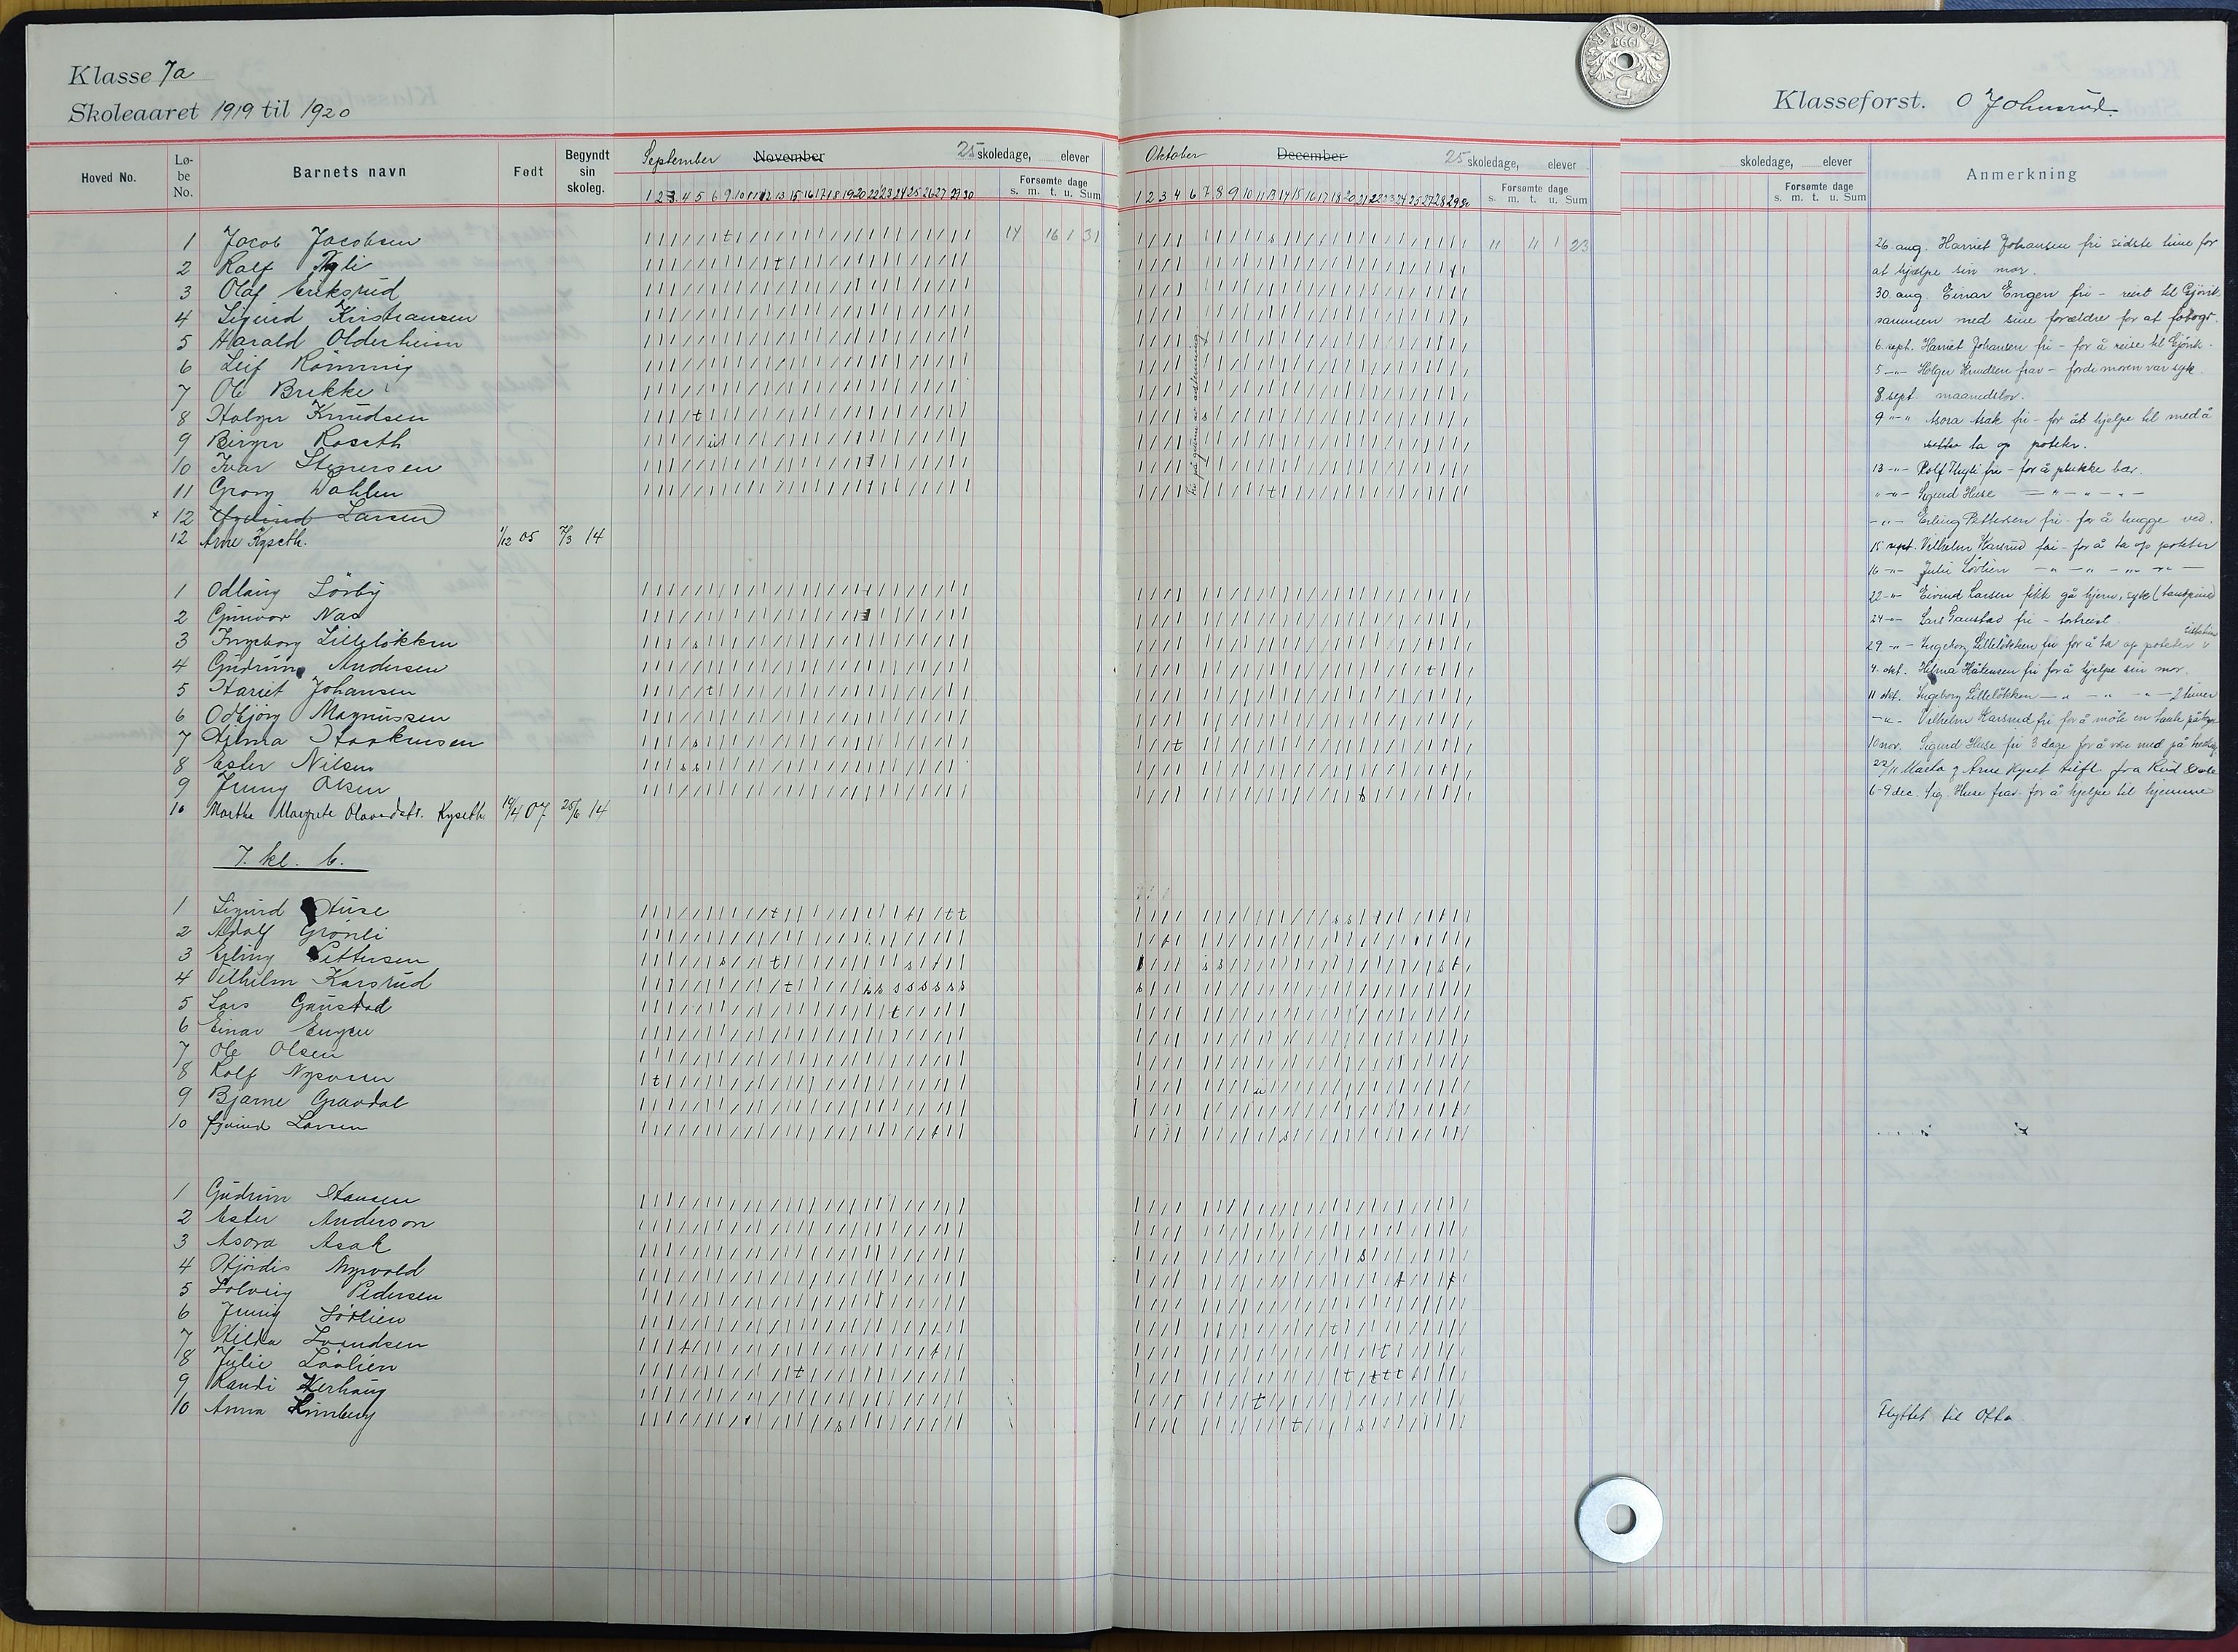 Klasse 7a
Skoleaaret 1919 til 1920
Klasseforst. O Johnsrud.
Hoved No.
Lø-
be
No.
Barnets navn
Født
Begyndt
sin
skoleg.
September November 25 skoledage, elever
Forsømte dage
s. m. t. u. Sum
1 2 3 4 5 6 9 10 11 12 13 15 16 17 18 19 20 22 23 24 25 26 27 29 30
Oktober December 25 skoledage, elever
Forsømte dage
s. m. t. u. Sum
1 2 3 4 6 7 8 9 10 11 13 14 15 16 17 18 20 21 22 23 24 25 27 28 29 30
skoledage, elever
Forsømte dage
s. m. t. u. Sum
Anmerkning
1 Jacob Jacobsen 14 16 1 31 11 11 1 23
2 Ralf Thyli
3 Olaf Eriksrud
4 Sigurd Kristiansen
5 Harald Olderheim
6 Leif Rønning
7 Ole Brekke
8 Holger Knudsen
9 Birger Roseth
10 Ivar Stenersen
11 Georg Dahlen
12 Øyvind Larsen
12 Arne Kyseth. 1/12 05 14
1 Odlaug Sørby
2 Gunvor Næs
3 Ingeborg Lilleløkken
4 Gudrun Andersen
5 Hariet Johansen
6 Odbjørg Magnussen
7 Hilma Haakensen
8 Ester Nilsen
9 Jenny Olsen
10 Martha Margrete Olavsdatt. Kyseth. 14/4 07 25/6 14
7. kl. b.
1 Sigurd Huse
2 Adolf Grønli
3 Erling Pettersen
4 Vilhelm Karsrud
5 Lars Gaustad
6 Einar Engen
7 Ole Olsen
8 Rolf
9 Bjarne Gravdal
10 Øyvind Larsen
1 Gudrun Hansen
2 Ester Anderson
3 Asora Asak
4 Hjørdis Myrvold
5 Solveig Pedersen
6 Jenny Sørlien
7 Hilda Svendsen
8 Julie Løvlien
9 Randi
10 Anna
26. aug. Harriet Johansen fri sidste time for
at hjælpe sin mor.
30. aug. Einar Engen fri – reist til Gjøvik
sammen med sine forældre for at fotogr.
6. sept. Harriet Johansen fri – for å reise til Gjøvik.
5 –"– Holger Knudsen frav – fordi moren var syk.
8 sept. maanedslov.
9 "–" Asora Asak fri – for åt hjelpe til med å
ta op poteter.
13 –"– Rolf Thyli fri – for å plukke bær.
" –"– Sigurd Huse – " – " – " –
–"– Erling Pettersen fri for å hugge ved.
15 sept. Vilhelm Karsrud fri – for å ta op poteter
16 –"– Julie Løvlien – " – " – " – " –
22 –"– Eivind Larsen fikk gå hjem, syk (tandpine)
24 –"– Lars Gaustad fri – bortreist.
29 –"– Ingeborg Lilleløkken fri for å ta op poteter
4. okt. Hilma Håkensen fri for å hjelpe sin mor.
11 okt. Ingeborg Lilleløkken – " – " – " – 2 timer
–"– Vilhelm Karsrud fri for å møte en tante på
10 nov. Sigurd Huse fri 3 dage for å være med på
22/11 Marta og Arne Kyset tilfl. fra Rud Skole
6–9 dec. Sig. Huse frav. for å hjelpe til hjemme
Flyttet til Otta.